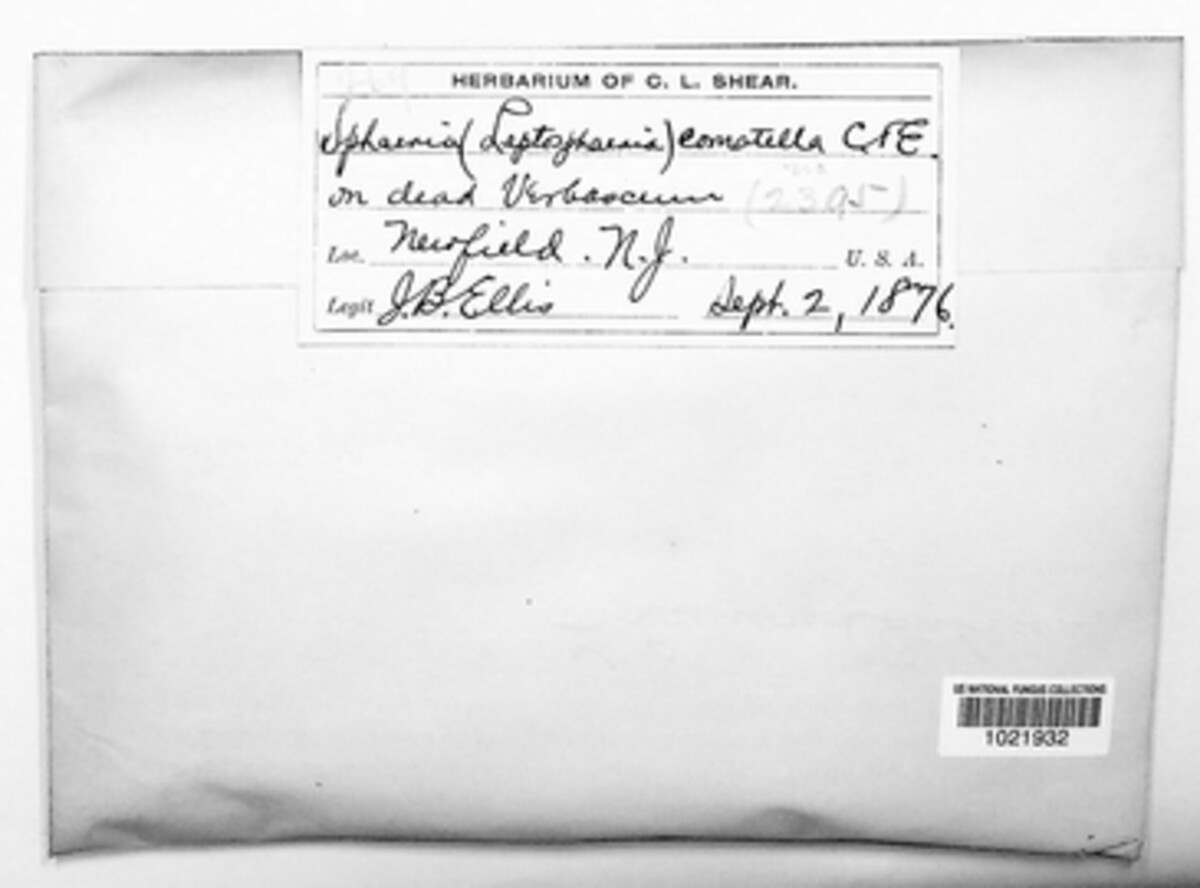 HERBARIUM OF C. L. SHEAR.
Sphaeria (Leptosphaeria) comatella C & E.
on dead Verbascum (2395)
Loc. Newfield. N.J. U. S. A.
Legit J.B. Ellis Sept. 2, 1876.
US NATIONAL FUNGUS COLLECTIONS
1021932